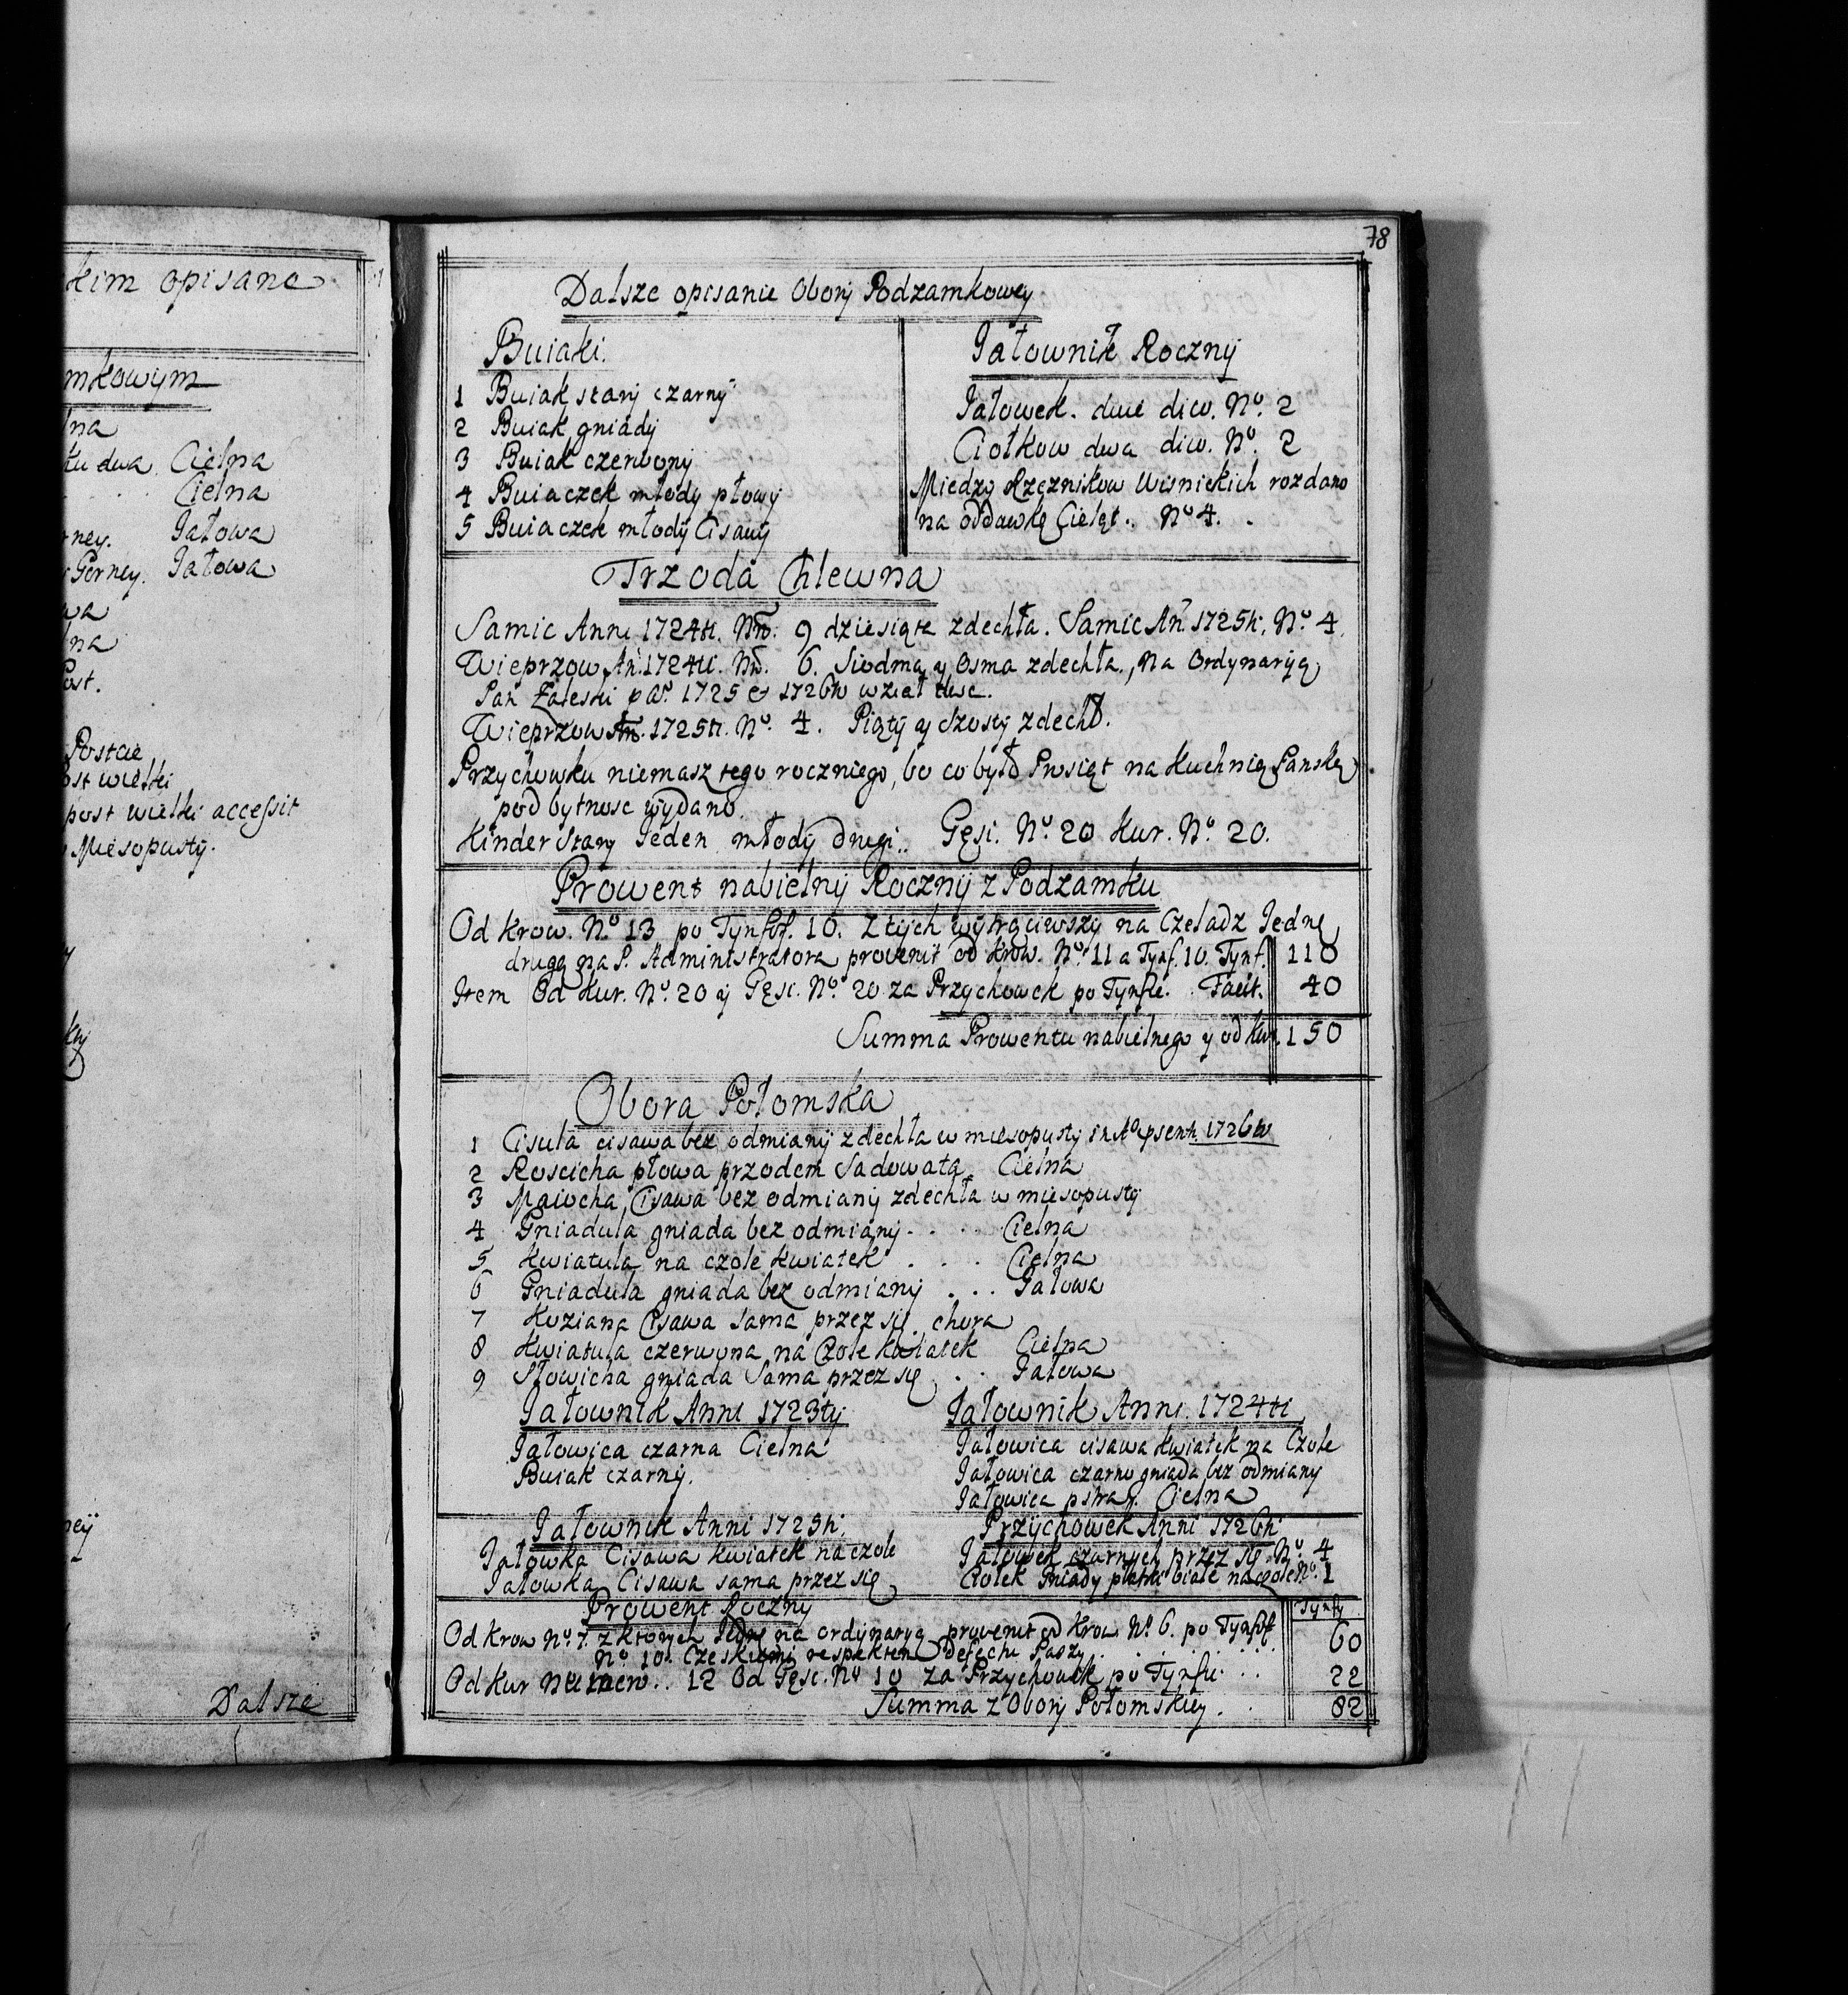 kim opisane
mkowym
lna
ku dwa. Cielna
Cielna
rney. Jałowa
Gorney. Jałowa
wa
lna
Post.
Postae
ost wielki
post wielki accessit
Miesopusty.
Dalsze
78
Dalsze opisanie Obory Podzamkowey
Buiaki.
1 Buiak stary czarny
2 Buiak gniady
3 Buiak czerwony
4 Buiaczek młody płowy
5 Buiaczek młody Cisawy
Jałownik Roczny
Jałowek. dwie dico. No. 2
Ciołkow dwa dico. No. 2
Miedzy Rzeznikow Wisnickich rozdano
na oddawkę Cieląt.. No 4. .
Trzoda Chlewna
Samic Anni 1724ti. Nro: 9 dziesiąta zdechła. Samic An. 1725ti. No. 4.
Wieprzow An. 1724ti. Nro. 6. Siodma y Osma zdechła., na Ordynaryą
Pan Zaleski p An. 1725 & 1726to wziął dwie.
Wieprzow An. 1725ti. No. 4. Piąty y Szosty zdechł.
Przychowku niemasz tego roczniego, bo co było Prosiąt na Kuchnię Panską
pod bytnosc wydano.
Kinder Stary Jeden młody drugi.. Gęsi. No. 20 Kur. No. 20.
Prowent nabielny Roczny z Podzamku
Od Krow. No. 13 po Tynfof. 10. Ztych wytrąciwszy na Czeladz Jedne
drugą na P. Administratora provenit od Krow. No. 11 a Tynf. 10. Tynf. 110
Item Od Kur. No. 20 y Gęsi. No. 20 za Przychowek po Tynfie. . Facit. 40
Summa Prowentu nabielnego y od Kur. 150
Obora Połomska
1 Cisula cisawa bez odmiany zdechła w miesopusty in Ao psenti. 1726to
2 Roscicha płowa przodem Sadowata Cielna
3 Maiocha Cisawa bez odmiany zdechła w miesopusty
4 Gniadula gniada bez odmiany. . . . Cielna
5 Kwiatula na czole kwiatek . . . . Cielna
6 Gniadula gniada bez odmiany . . . Jałowa
7 Koziana Cisawa Sama przez się chora
8 Kwiatula czerwona na Czole kwiatek Cielna
9 Słowicha gniada Sama przez się . . Jałowa
Jałownik Anni 1723tij
Jałowica czarna Cielna
Buiak czarny.
Jałownik Anni. 1724ti
Jałowica cisawa kwiatek na Czole
Jałowica czarno gniada bez odmiany
Jałowica pstra. Cielna
Jałownik Anni 1725ti.
Jałowka Cisawa kwiatek na czole
Jałowka Cisawa sama przez się
Przychowek Anni 1726ti
Jałowek czarnych przez się. No. 4
Ciołek Gniady białe na czole No. 1
Prowent Roczny
Tynfy
Od Krow No. 7. z ktorych Jedne na ordynaryą provenit od Krow. No. 6. po Tynfof
No 10. Czeskiemi respektem Defectu Paszy . . . . . . . . 60
Od Kur numero.. 12 Od Gęsi. No 10 za Przychowek po Tynfie. . . 22
Summa z Obory Połomskiey. . 82